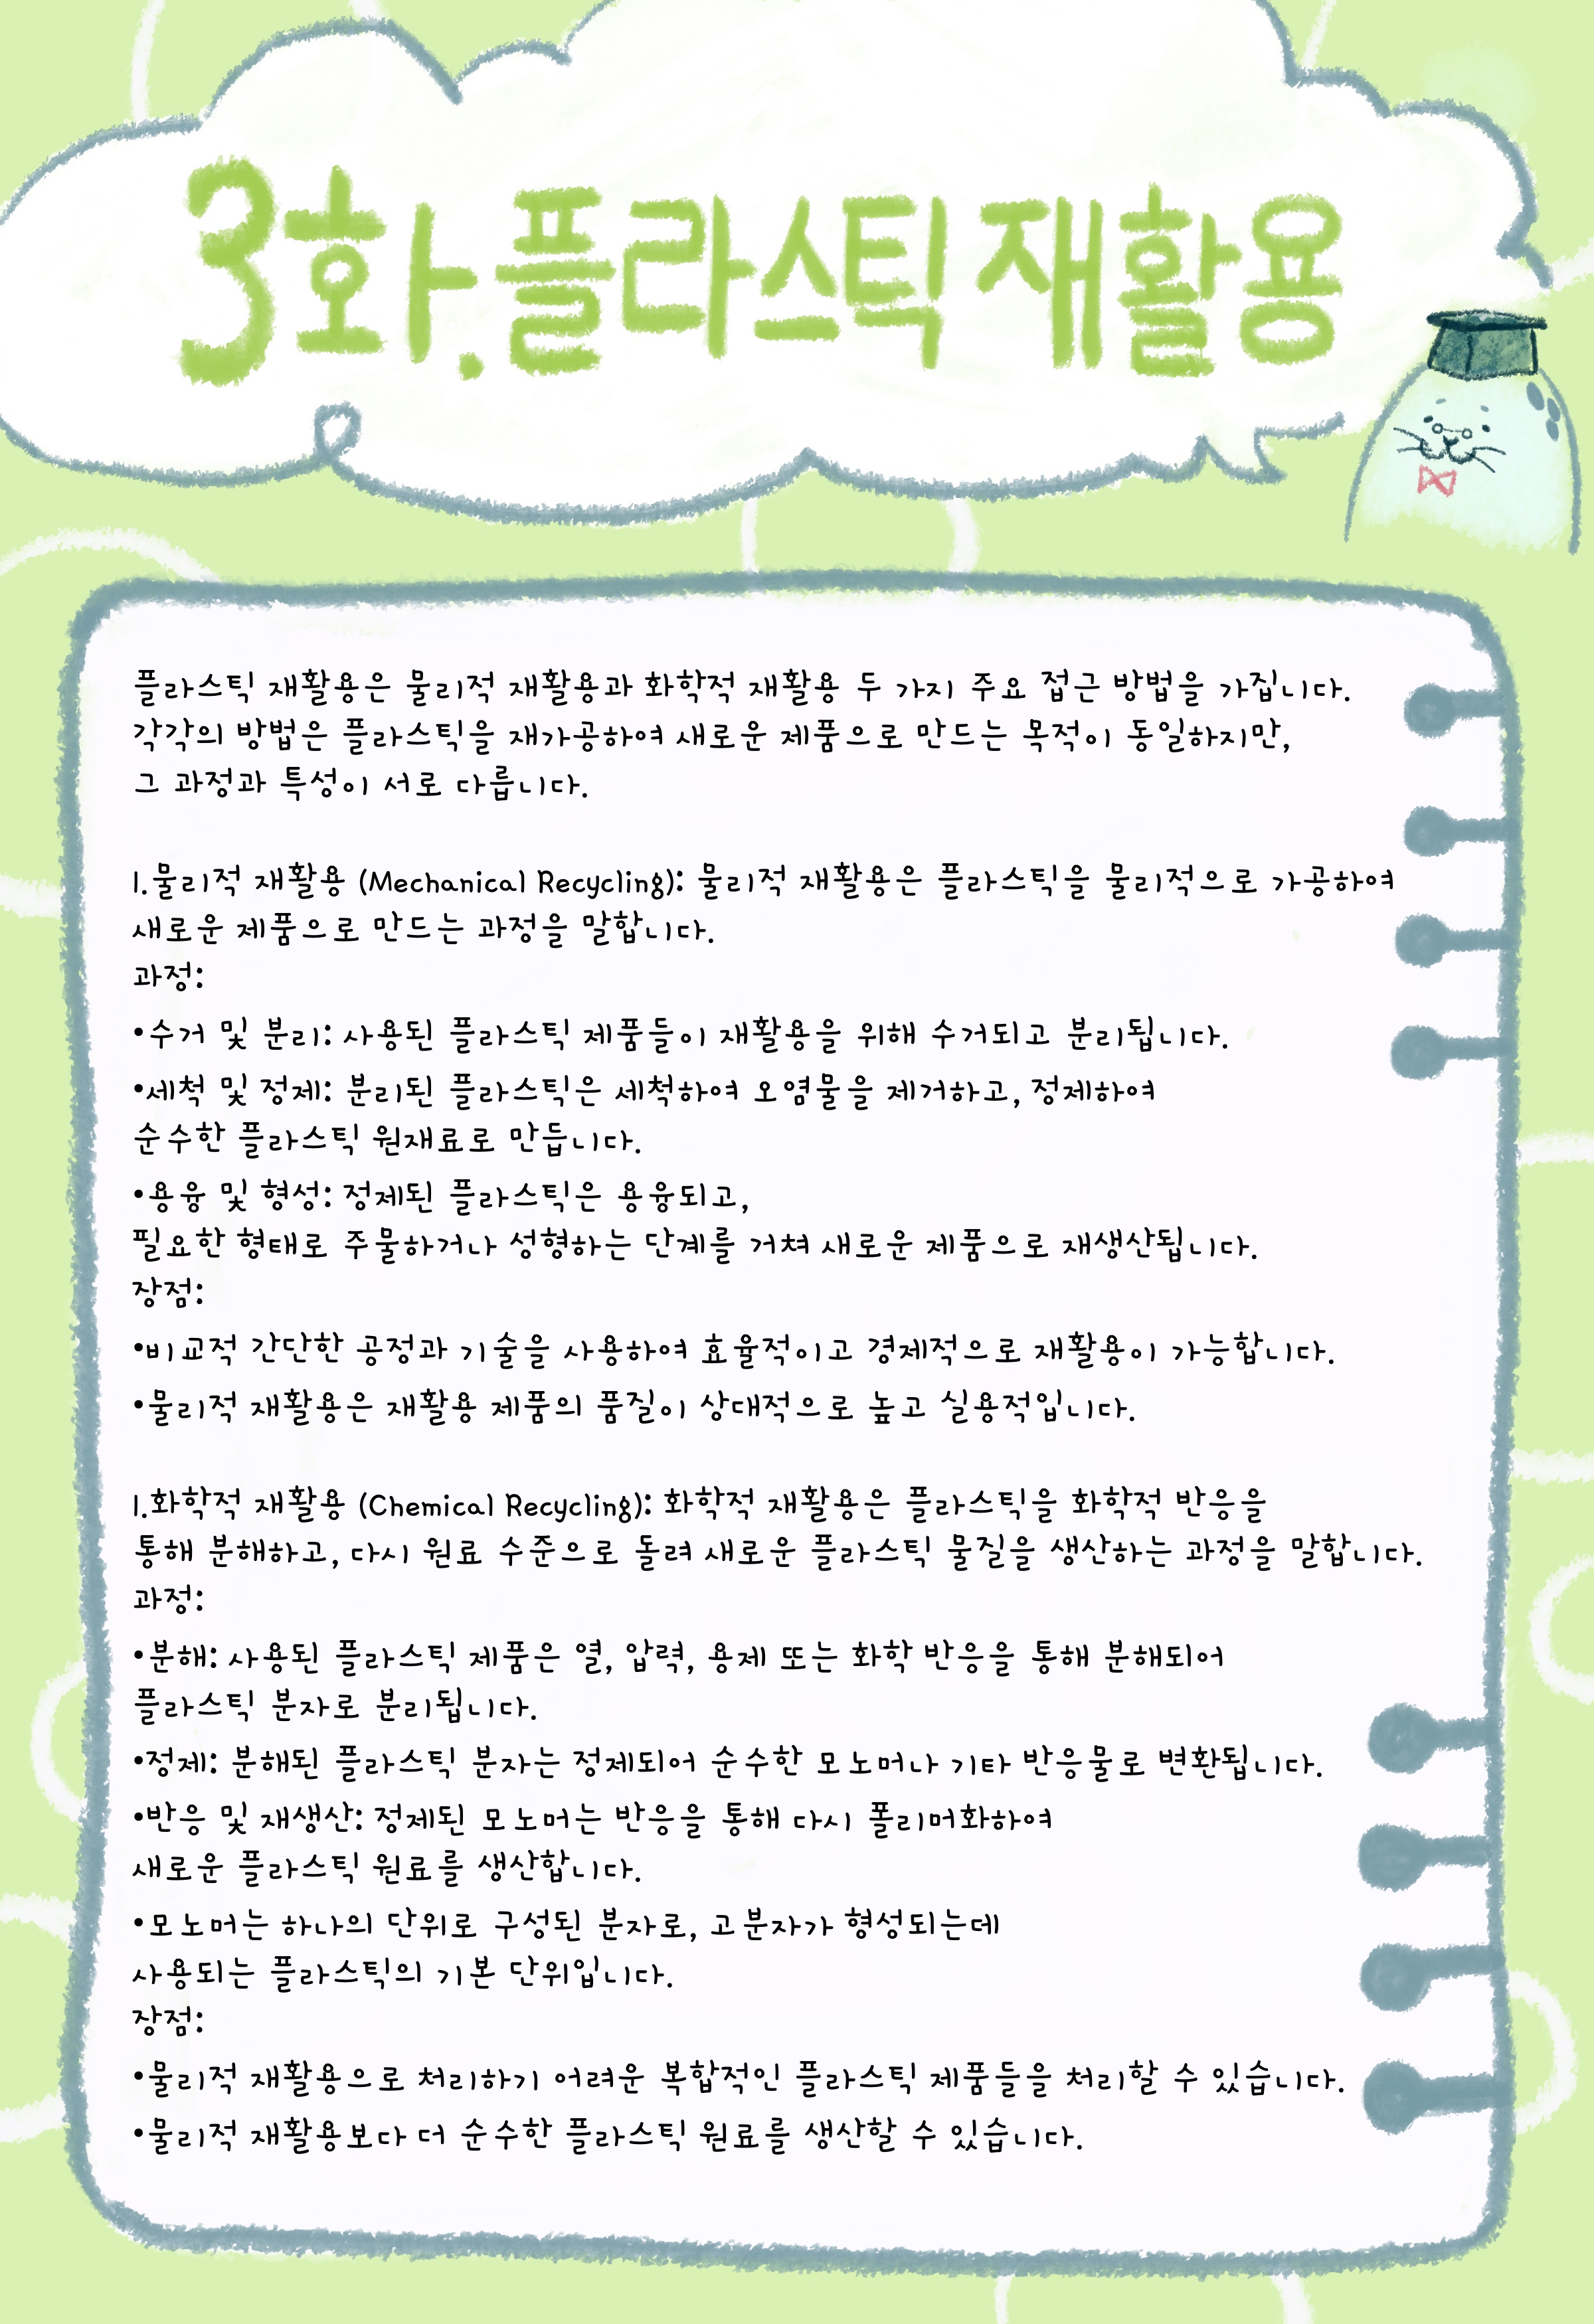 3화.플라스틱 재활용
플라스틱 재활용은 물리적 재활용과 화학적 재활용 두 가지 주요 접근 방법을 가집니다.
각각의 방법은 플라스틱을 재가공하여 새로운 제품으로 만드는 목적이 동일하지만,
그 과정과 특성이 서로 다릅니다.
1.물리적 재활용 (Mechanical Recycling): 물리적 재활용은 플라스틱을 물리적으로 가공하여
새로운 제품으로 만드는 과정을 말합니다.
과정:
•수거 및 분리: 사용된 플라스틱 제품들이 재활용을 위해 수거되고 분리됩니다.
•세척 및 정제: 분리된 플라스틱은 세척하여 오염물을 제거하고, 정제하여
순수한 플라스틱 원재료로 만듭니다.
•용융 및 형성: 정제된 플라스틱은 용융되고,
필요한 형태로 주물하거나 성형하는 단계를 거쳐 새로운 제품으로 재생산됩니다.
장점:
•비교적 간단한 공정과 기술을 사용하여 효율적이고 경제적으로 재활용이 가능합니다.
•물리적 재활용은 재활용 제품의 품질이 상대적으로 높고 실용적입니다.
1.화학적 재활용 (Chemical Recycling): 화학적 재활용은 플라스틱을 화학적 반응을
통해 분해하고, 다시 원료 수준으로 돌려 새로운 플라스틱 물질을 생산하는 과정을 말합니다.
과정:
•분해: 사용된 플라스틱 제품은 열, 압력, 용제 또는 화학 반응을 통해 분해되어
플라스틱 분자로 분리됩니다.
•정제: 분해된 플라스틱 분자는 정제되어 순수한 모노머나 기타 반응물로 변환됩니다.
•반응 및 재생산: 정제된 모노머는 반응을 통해 다시 폴리머화하여
새로운 플라스틱 원료를 생산합니다.
•모노머는 하나의 단위로 구성된 분자로, 고분자가 형성되는데
사용되는 플라스틱의 기본 단위입니다.
장점:
•물리적 재활용으로 처리하기 어려운 복합적인 플라스틱 제품들을 처리할 수 있습니다.
•물리적 재활용보다 더 순수한 플라스틱 원료를 생산할 수 있습니다.